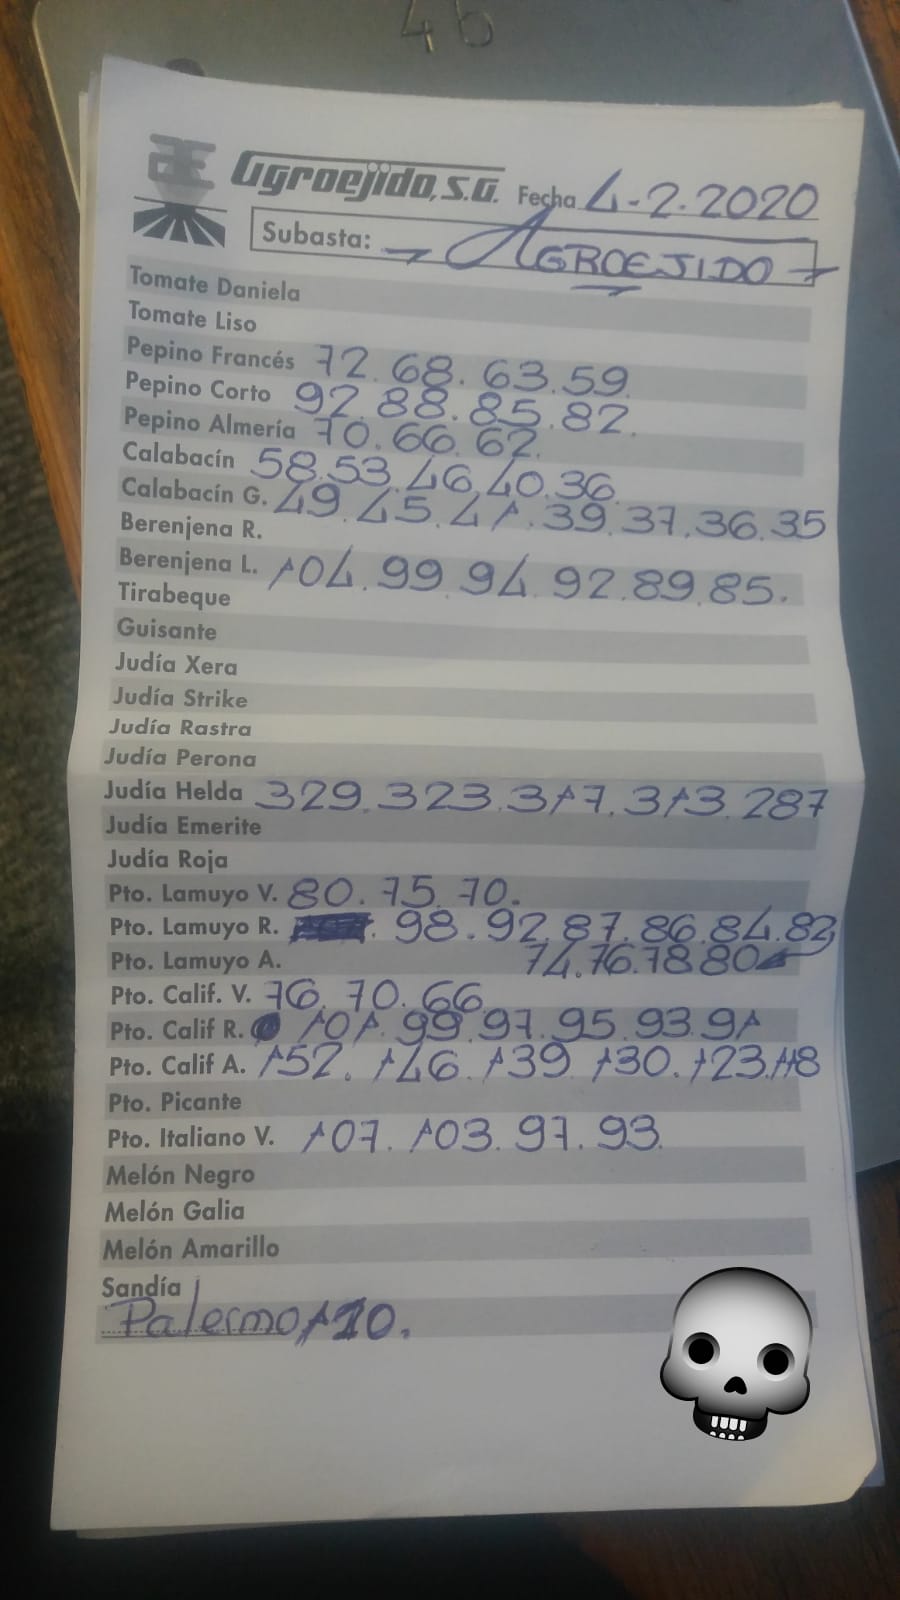 46
AE Agroejido, S.A. Fecha 4-2.2020
Subasta: - AGROEJIDO -
Tomate Daniela
Tomate Liso
Pepino Francés 72. 68. 63. 59
Pepino Corto 92. 88. 85. 82.
Pepino Almería 70. 66. 62.
Calabacín 58. 53. 46. 40. 36.
Calabacín G. 49. 45. 41. 39. 37. 36. 35
Berenjena R.
Berenjena L. 104. 99. 94. 92. 89. 85.
Tirabeque
Guisante
Judía Xera
Judía Strike
Judía Rastra
Judía Perona
Judía Helda 329. 323. 317. 313. 287
Judía Emerite
Judía Roja
Pto. Lamuyo V. 80. 75. 70.
Pto. Lamuyo R. 98. 92. 87. 86. 84. 82
Pto. Lamuyo A. 74. 76. 78 80
Pto. Calif. V. 76. 70. 66
Pto. Calif R. 101. 99. 97. 95. 93. 91
Pto. Calif A. 152. 146. 139 130. 123. 118
Pto. Picante
Pto. Italiano V. 107. 103. 97. 93.
Melón Negro
Melón Galia
Melón Amarillo
Sandía
Palermo 110.